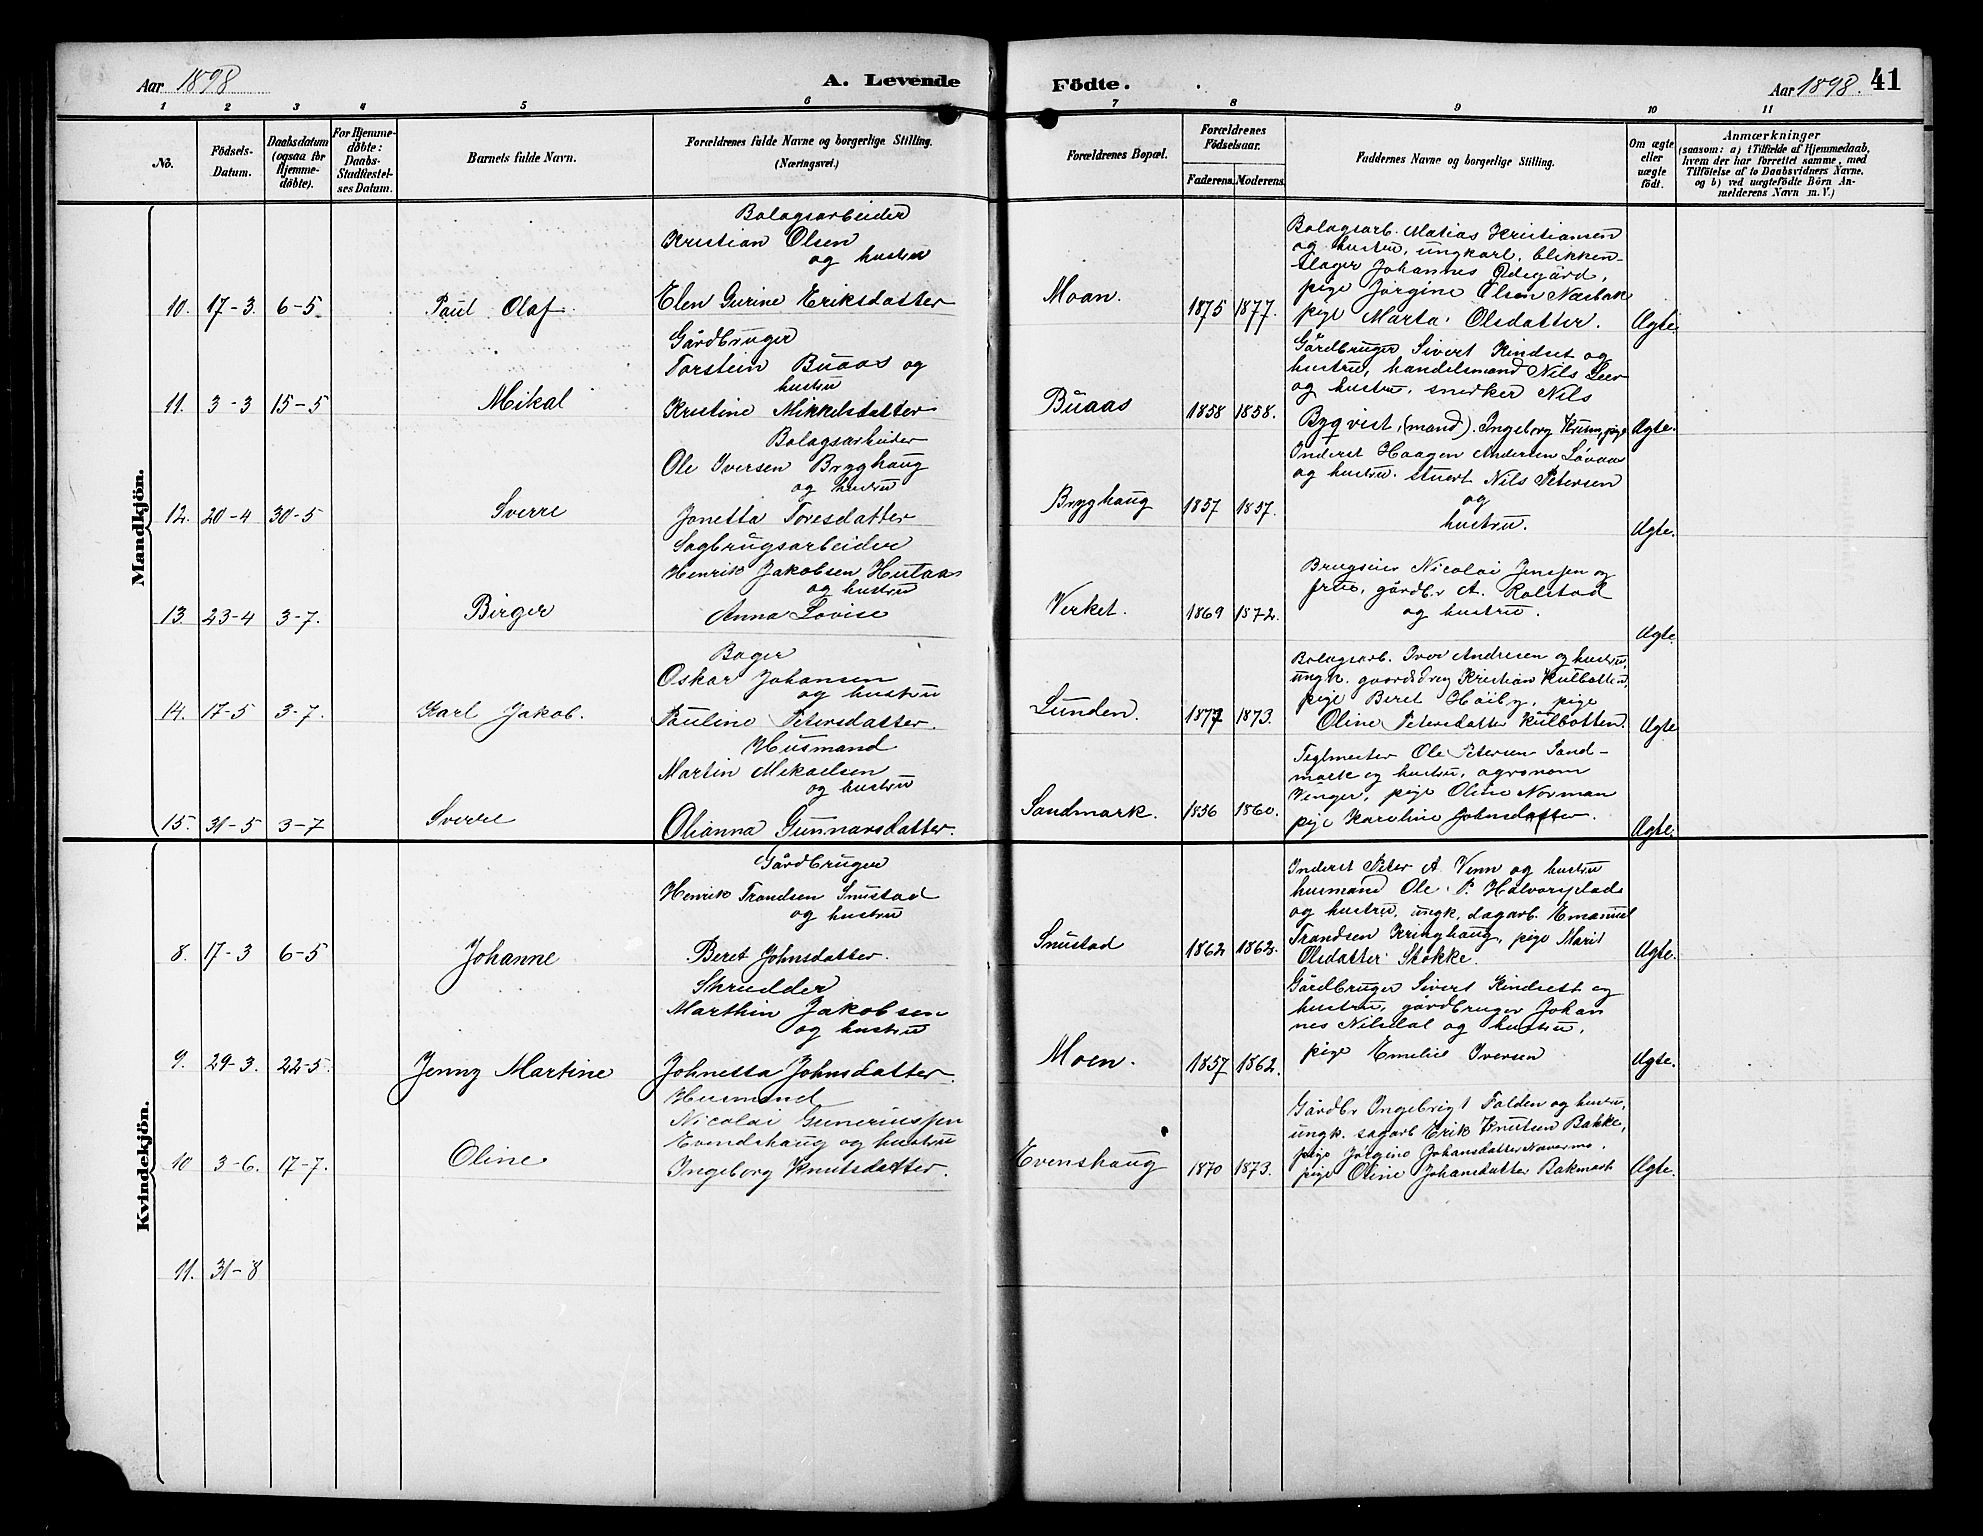 Aar 1898
A. Levende
Födte.
Aar 1898.
41
1 2 3 4 5 6 7 8 9 10 11
No.
Födsels-
Datum.
Daabsdatum
(ogsaa for
Hjemme-
döbte).
For Hjemme-
döbte:
Daabs-
Stadfæstel-
ses Datum.
Barnets fulde Navn.
Forældrenes fulde Navne og borgerlige Stilling.
(Næringsvei.)
Forældrenes Bopæl.
Forældrenes
Födselsaar.
Faderens. Moderens.
Faddernes Navne og borgerlige Stilling.
Om ægte
eller
uægte
født.
Anmærkninger
(saasom: a) i Tilfælde af Hjemmedaab,
hvem der har forrettet samme, med
Tilföielse af to Daabsvidners Navne,
og b) ved uægtefödte Börn An-
melderens Navn m. V.)
Mandkjön.
10. 17-3. 6-5. Paul Olaf.
Bolagsarbeider
Kristian Olsen
og hustru
Elen Gurine Eriksdatter
Moan. 1875 1877.
Bolagsarb. Matias Kristiansen
og hustru, ungkarl, blikken-
slager Johannes Ødegård,
pige Jørgine Olsen Næsbak
pige Marta Olsdatter.
Ægte.
11. 3-3 15-5 Mikal
Gårdbruger
Torstein Buaas og
hustru
Kristine Mikkelsdatter
Buaas 1858 1858.
Gårdbruger Sivert Kindset og
hustru, handelsmand Nils Leer
og hustru, snedker Nils
Bygqvist, (mand). Ingeborg Krum, pige
Ægte.
12. 20-4 30-5 Sverre
Bolagsarbeider
Ole Iversen Bryghaug
og hustru
Jonetta Toresdatter
Bryghaug 1857 1857.
Inderst Haagen Andersen Løvaas
og hustru. stuert Nils Petersen
og
hustru.
Ægte.
13. 23-4 3-7. Birger
Sagbrugsarbeider
Henrik Jakobsen Hutaas
og hustru
Anna Lovise
Verket. 1869 1872.
Brugseier Nicolai Jenssen og
frue, gårdbr A. Rolstad
og hustru.
Ægte.
14. 17-5 3-7. Karl Jakob.
Bager
Oskar Johansen
og hustru
Pauline Petersdatter.
Lunden. 1877 1873.
Bolagsarb. Iver Andresen og hustru,
ungk. gaardsdreng Kristian Kulbotten,
pige Beret Høiby, pige
Oline Petersdatter Kulbotten.
Ægte
15. 31-5 3-7 Sverre
Husmand
Martin Mikaelsen
og hustru
Olianna Gunnarsdatter.
Sandmark. 1856 1860.
Teglmester Ole Petersen Sand-
mark og hustru, agronom
Vinger, pige Oline Norman
pige Karoline Johnsdatter.
Ægte.
Kvindekjön.
8. 17-3 6-5 Johanne
Gårdbruger
Henrik Trondsen Snustad
og hustru
Beret Johnsdatter.
Snustad 1862 1862.
Inderst Peter A. Venn og hustru
husmand Ole P. Halvorsplads
og hustru, ungk. dagarb. Emanuel
Trondsen Kringhaug, pige Marit
Olsdatter Stokke.
Ægte.
9. 29-3. 22-5. Jenny Martine
Skrædder
Marthin Jakobsen
og hustru
Johnetta Johnsdatter.
Moen. 1857 1862.
Gårdbruger Sivert Kindsett og
hustru, gårdbruger Johan
nes Nilsdal og hustru,
pige Emelie Iversen
Ægte.
10 3-6. 17-7. Oline
Husmand
Nicolai Guneriussen
Evendshaug og hustru
Ingeborg Knutsdatter.
Evenshaug 1870 1873.
Gårdbr Ingebrigt Folden og hustru,
ungk. sagarb Erik Knutsen Bakke,
pige Jørgine Johansdatter Navermo.
pige Oline Johansdatter Bakmark
Ægte.
11. 31-8